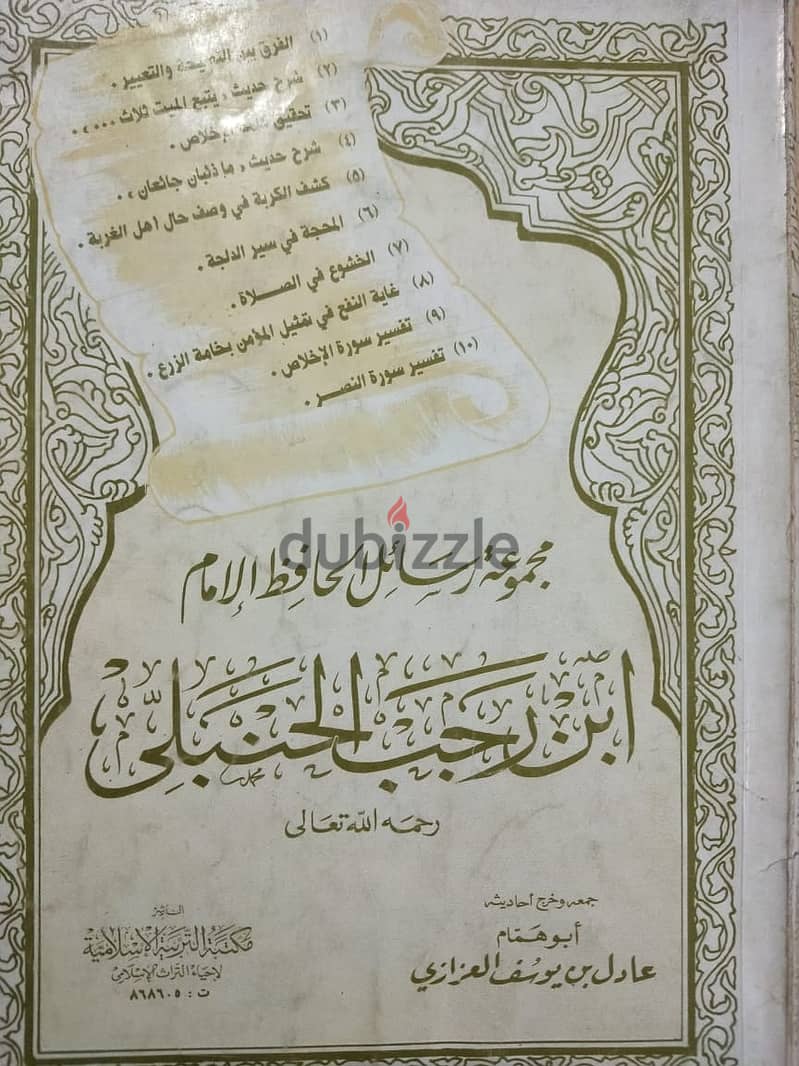 (١) الفرق بين النصيحة والتعيير .
(٢) شرح حديث « يتبع الميت ثلاث ... » .
(٣) تحقيق كلمة الإخلاص .
(٤) شرح حديث « ما ذئبان جائعان » .
(٥) كشف الكربة في وصف حال أهل الغربة .
(٦) المحجة في سير الدلجة .
(٧) الخشوع في الصلاة .
(٨) غاية النفع في تمثيل المؤمن بخامة الزرع .
(٩) تفسير سورة الإخلاص .
(١٠) تفسير سورة النصر .
dubizzle
مجموعة رسائل الحافظ الإمام
ابن رجب الحنبلي
محمد
رحمه الله تعالى
جمعه وخرج أحاديثه
أبو همام
عادل بن يوسف العزازي
الناشر
مكتبة التربية الإسلامية
لإحياء التراث الإسلامي
ت : ٨٦٨٦٠٥